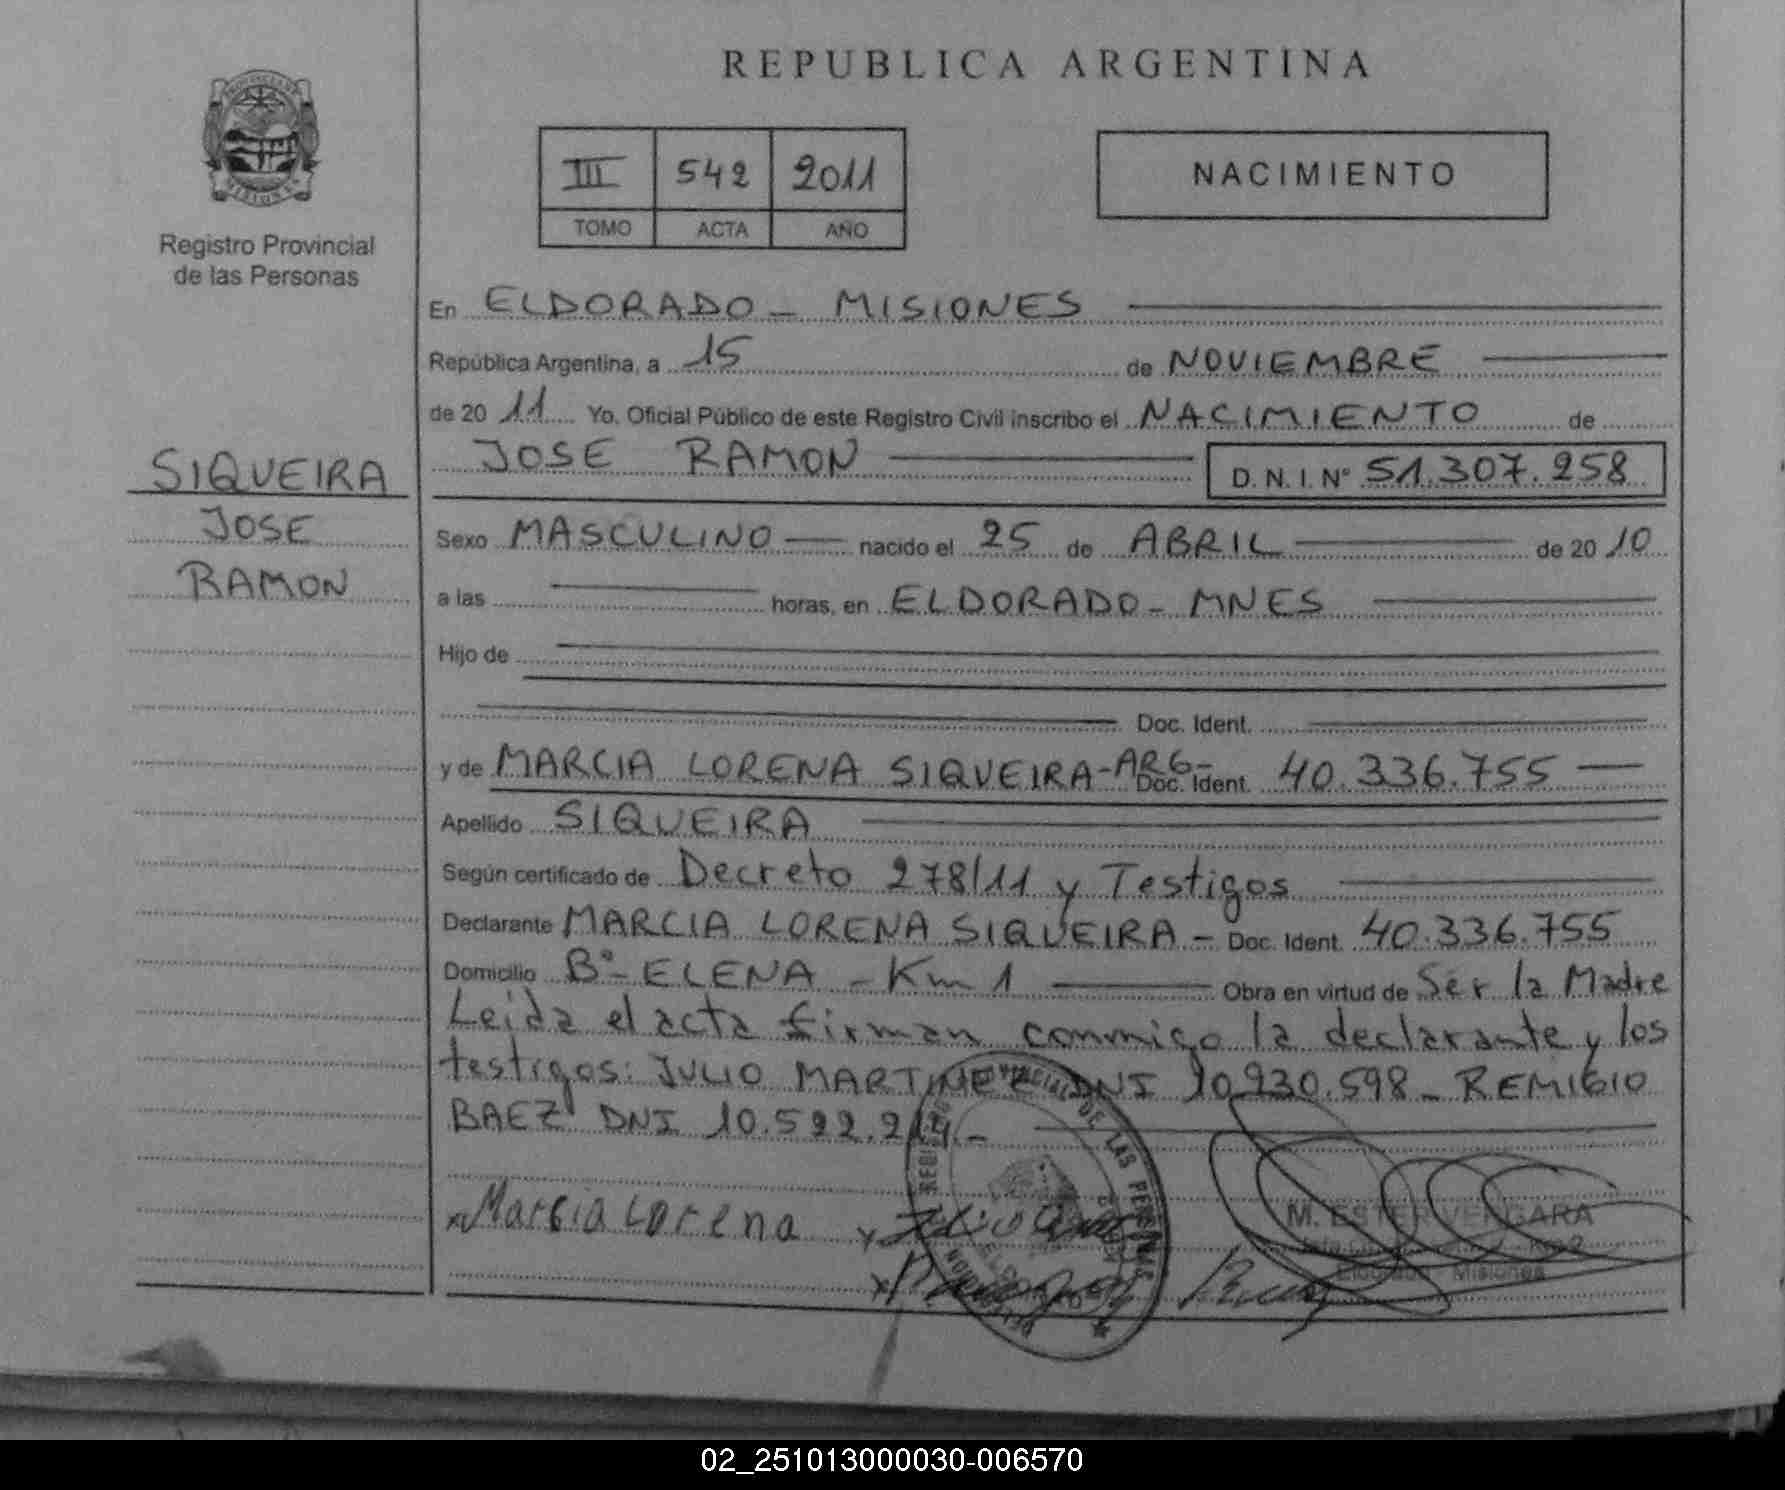 REPUBLICA ARGENTINA
III 542 2011
TOMO ACTA AÑO
NACIMIENTO
Registro Provincial
de las Personas
SIQUEIRA
JOSE
RAMON
En ELDORADO - MISIONES
República Argentina, a 15 de NOVIEMBRE
de 20 11 Yo, Oficial Público de este Registro Civil inscribo el NACIMIENTO de
JOSE RAMON D.N.I. Nº 51.307.258
Sexo MASCULINO nacido el 25 de ABRIL de 20 10
a las horas, en ELDORADO - MNES
Hijo de
Doc. Ident.
y de MARCIA LORENA SIQUEIRA - ARG - Doc. Ident. 40.336.755
Apellido SIQUEIRA
Según certificado de Decreto 278/11 y Testigos
Declarante MARCIA LORENA SIQUEIRA - Doc. Ident. 40.336.755
Domicilio Bº - ELENA - Km 1 Obra en virtud de Ser la Madre
Leida el acta firman conmigo la declarante y los
testigos: JULIO MARTINEZ DNI 10.930.598 - REMIGIO
BAEZ DNI 10.592.214.-
x Marcia Lorena
M. ESTER VERGARA
Eldorado - Misiones
02_251013000030-006570